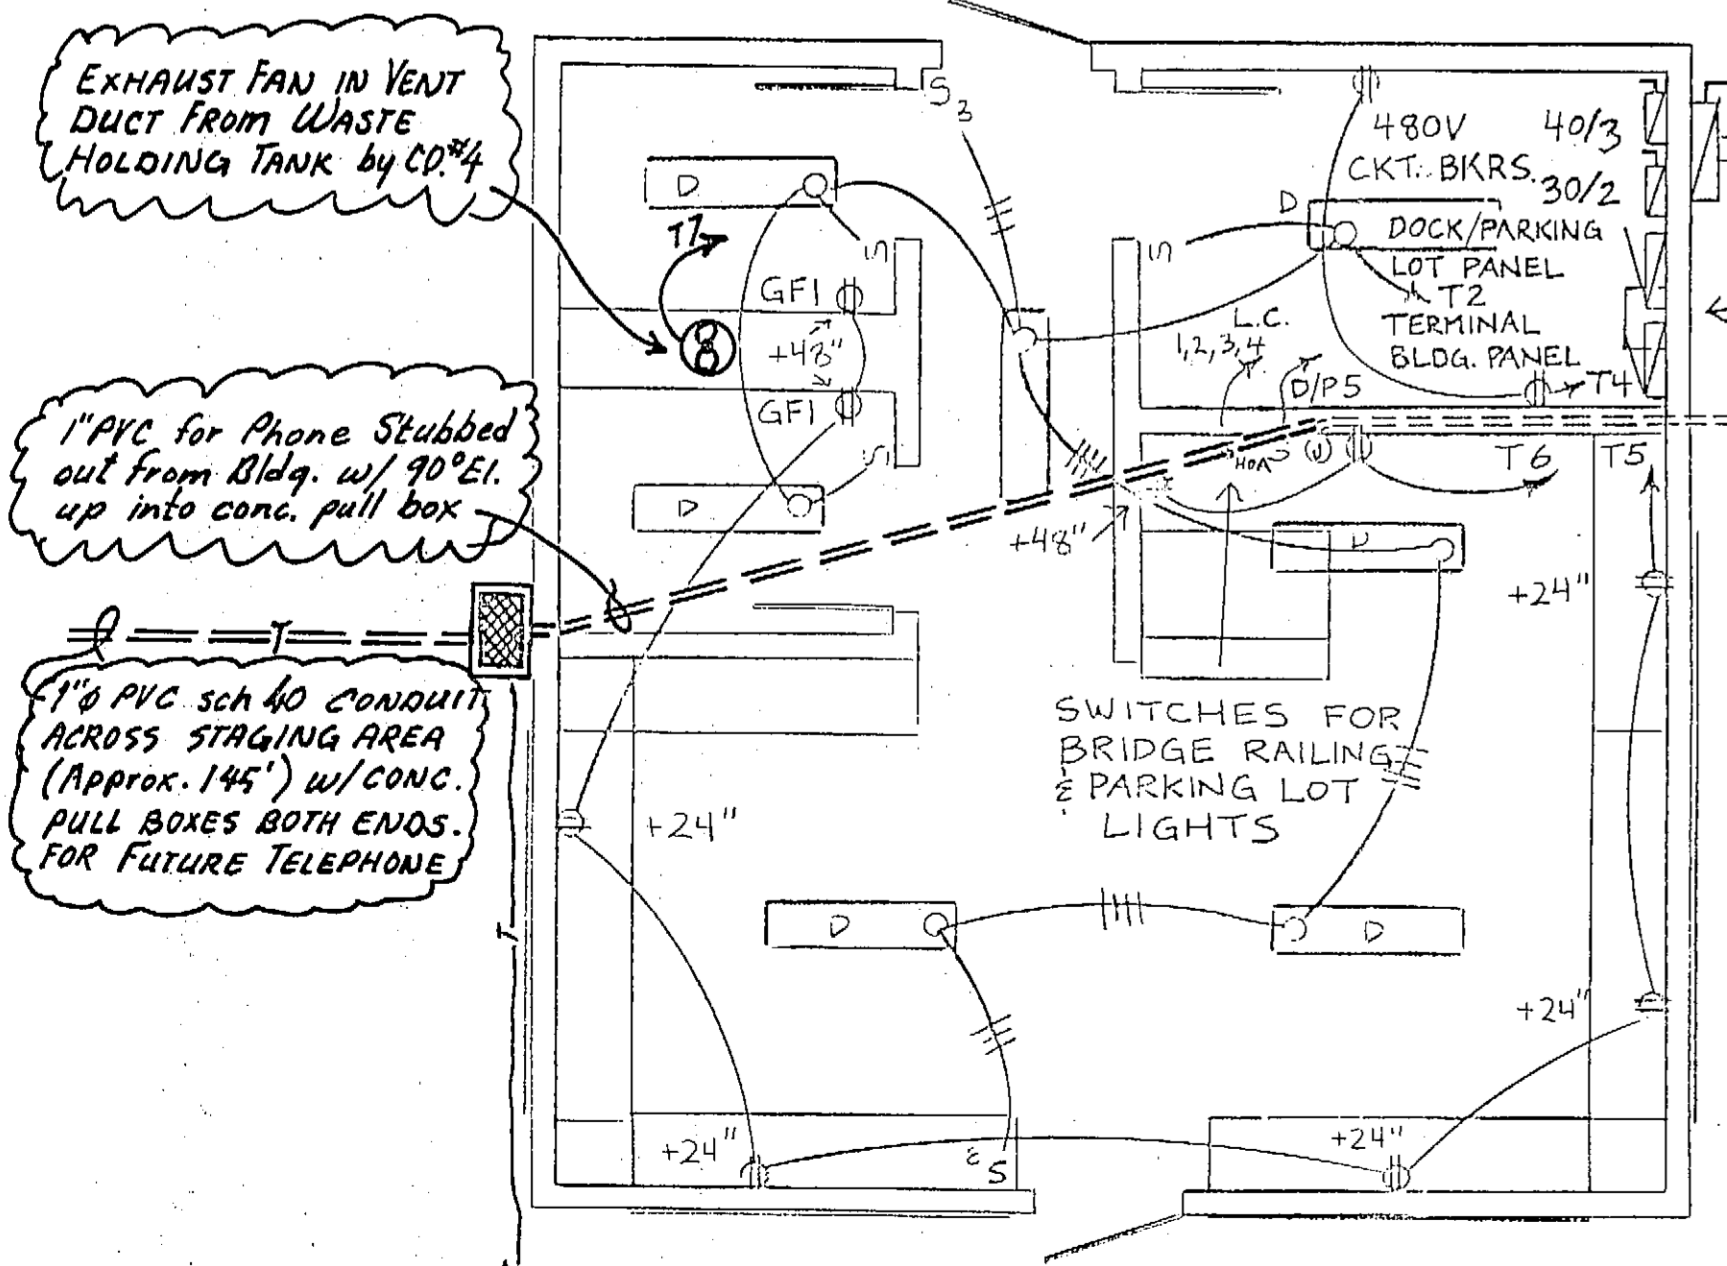 EXHAUST FAN IN VENT
DUCT FROM WASTE
HOLDING TANK by CO.#4
1" PVC for Phone Stubbed
out from Bldg. w/ 90° El.
up into conc. pull box
1"ø PVC sch 40 CONDUIT
ACROSS STAGING AREA
(Approx. 145') w/ CONC.
PULL BOXES BOTH ENDS.
FOR FUTURE TELEPHONE
T
T
S3
D
T7
S
GFI
+48"
GFI
S
D
480V
CKT. BKRS.
40/3
30/2
D
S
DOCK/PARKING
LOT PANEL
T2
TERMINAL
BLDG. PANEL
L.C.
1,2,3,4
D/P5
T4
HOA
J
T6
T5
+48"
D
+24"
SWITCHES FOR
BRIDGE RAILING
& PARKING LOT
LIGHTS
+24"
D
D
+24"
+24"
S3
+24"